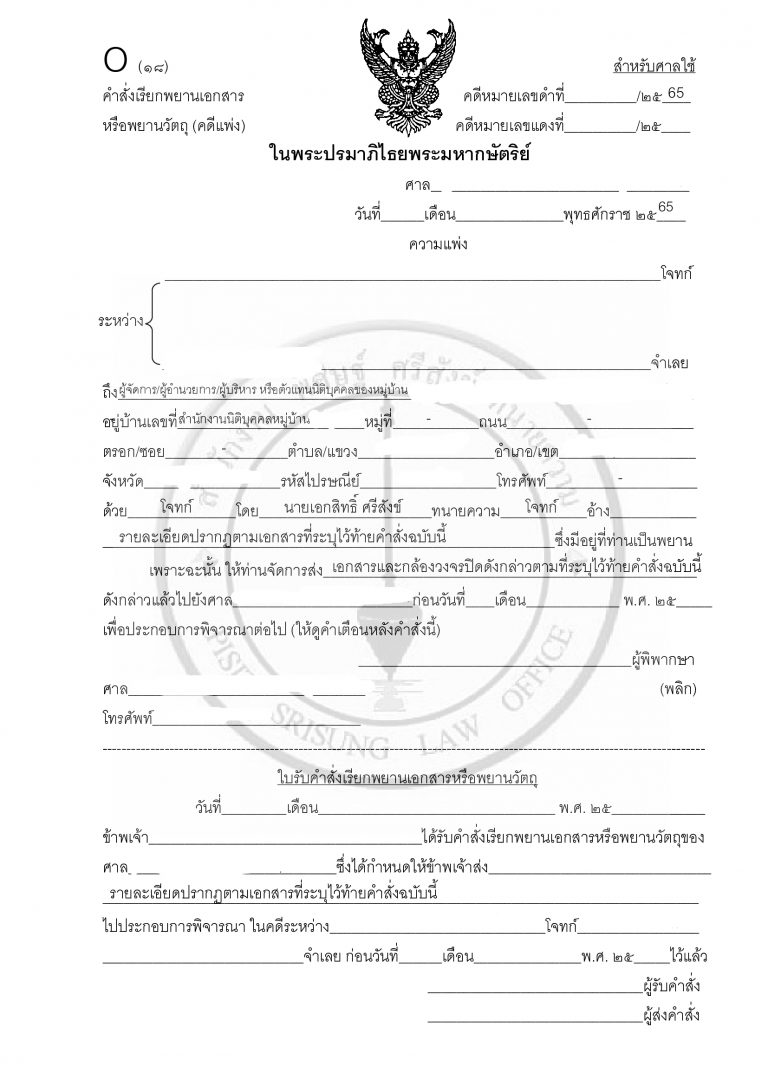 O (๑๘)
สำหรับศาลใช้
คำสั่งเรียกพยานเอกสาร
คดีหมายเลขดำที่_________/๒๕ 65
หรือพยานวัตถุ (คดีแพ่ง)
คดีหมายเลขแดงที่_________/๒๕____
ในพระปรมาภิไธยพระมหากษัตริย์
ศาล_ _____________________ ________
วันที่______เดือน______________พุทธศักราช ๒๕65
ความแพ่ง
______________________________โจทก์
ระหว่าง
______________________________จำเลย
ถึงผู้จัดการ/ผู้อำนวยการ/ผู้บริหาร หรือตัวแทนนิติบุคคลของหมู่บ้าน
อยู่บ้านเลขที่สำนักงานนิติบุคคลหมู่บ้าน ____หมู่ที่____-____ถนน__________-__________
ตรอก/ซอย______-______ตำบล/แขวง______________อำเภอ/เขต______________
จังหวัด______________รหัสไปรษณีย์______________โทรศัพท์__________-______
ด้วย____โจทก์____โดย___นายเอกสิทธิ์ ศรีสังข์___ทนายความ___โจทก์___อ้าง________
รายละเอียดปรากฏตามเอกสารที่ระบุไว้ท้ายคำสั่งฉบับนี้______________ซึ่งมีอยู่ที่ท่านเป็นพยาน
เพราะฉะนั้น ให้ท่านจัดการส่ง_เอกสารและกล้องวงจรปิดดังกล่าวตามที่ระบุไว้ท้ายคำสั่งฉบับนี้
ดังกล่าวแล้วไปยังศาล____________________ก่อนวันที่____เดือน____________ พ.ศ. ๒๕_____
เพื่อประกอบการพิจารณาต่อไป (ให้ดูคำเตือนหลังคำสั่งนี้)
______________________________ผู้พิพากษา
ศาล______________________________ (พลิก)
โทรศัพท์______________________
ใบรับคำสั่งเรียกพยานเอกสารหรือพยานวัตถุ
วันที่________เดือน__________________________ พ.ศ. ๒๕____________
ข้าพเจ้า______________________________ได้รับคำสั่งเรียกพยานเอกสารหรือพยานวัตถุของ
ศาล_ ___ ______________ซึ่งได้กำหนดให้ข้าพเจ้าส่ง________________________
รายละเอียดปรากฏตามเอกสารที่ระบุไว้ท้ายคำสั่งฉบับนี้
ไปประกอบการพิจารณา ในคดีระหว่าง________________________โจทก์______________
______________________จำเลย ก่อนวันที่_____เดือน____________พ.ศ. ๒๕____ไว้แล้ว
________________________ผู้รับคำสั่ง
________________________ผู้ส่งคำสั่ง
SRISUNG LAW OFFICE